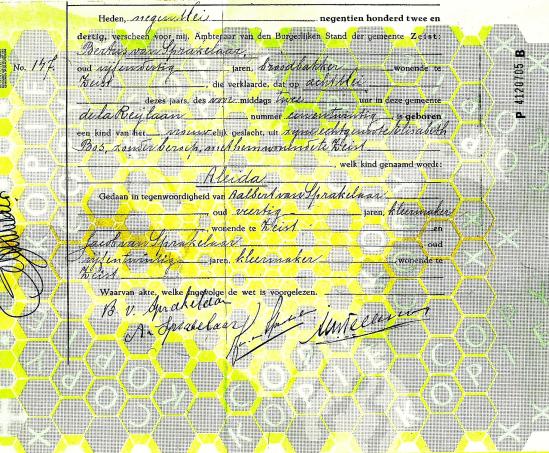 Heden, negen Mei negentien honderd twee en
dertig, verscheen voor mij, Ambtenaar van den Burgerlijken Stand der gemeente Zeist:
Bertus van Sprakelaar,
No. 147. oud vijfendertig jaren, broodbakker wonende te
Zeist, die verklaarde, dat op acht Mei
dezes jaars, des voormiddags twee uur in deze gemeente
de la Reijlaan nummer eenentwintig, is geboren
een kind van het vrouwelijk geslacht, uit zijne echtgenoote Elisabeth
Bos, zonder beroep, met hem wonende te Zeist
, welk kind genaamd wordt:
Aleida
Gedaan in tegenwoordigheid van Aalbert van Sprakelaar
, oud veertig jaren, kleermaker
, wonende te Zeist en
Jacob van Sprakelaar, oud
vijfentwintig jaren, kleermaker wonende te
Zeist
Waarvan akte, welke ingevolge de wet is voorgelezen.
B. v. Sprakelaar
A. v. Sprakelaar
P 4120705 B
KOPIE